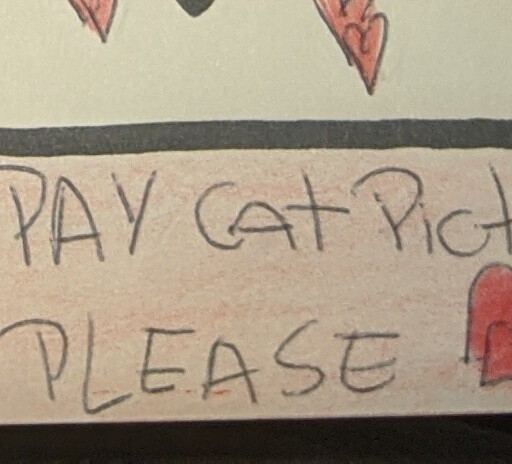 PAY Cat Pict
PLEASE